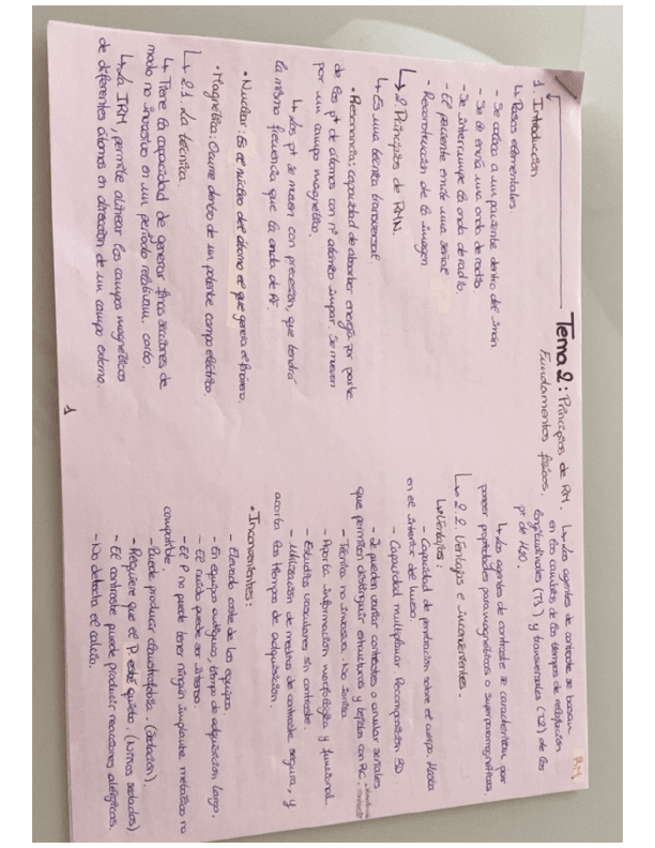 RM
Tema 2: Principios de RM.
Fundamentos físicos.
1. Introducción
↳ Pasos elementales:
- Se coloca a un paciente dentro del imán
- Se le envía una onda de radio.
- Se interrumpe la onda de radio.
- El paciente emite una señal
- Reconstrucción de la imagen
↳ 2. Principios de RMN.
↳ Es una técnica transversal
• Resonancia: capacidad de absorber energía por parte
de los p+ de átomos con nº atómico impar. Se mueven
por un campo magnético.
↳ Los p+ se mueven con precesión, que tendrá
la misma frecuencia que la onda de RF.
• Nuclear: Es el núcleo del átomo el que genera el
• Magnética: Ocurre dentro de un potente campo eléctrico.
↳ 2.1. La técnica.
↳ Tiene la capacidad de generar finas secciones de
modo no invasivo en un período relativam. corto.
↳ La IRM, permite alinear los campos magnéticos
de diferentes átomos en dirección de un campo externo.
1
↳ Los agentes de contraste se basan
en los cambios de los tiempos de relajación
longitudinales (T1) y transversales (T2) de los
p+ de H2O.
↳ Los agentes de contraste se caracterizan por
poseer propiedades paramagnéticas o superparamagnéticas.
↳ 2.2. Ventajas e inconvenientes.
↳ Ventajas:
- Capacidad de penetración sobre el cuerpo. Hasta
en el interior del hueso.
- Capacidad multiplanar. Recomposición 3D
- Se pueden variar contrastes o anular señales
que permiten distinguir estructuras y tejidos con
- Técnica no invasiva. No ioniza
- Aporta información morfológica y funcional.
- Estudios vasculares sin contraste.
- Utilización de medios de contraste segura, y
acorta los tiempos de adquisición.
• Inconvenientes:
- Elevado coste de los equipos.
- En equipos antiguos, tiempo de adquisición largo.
- El ruido puede ser intenso
- El P no puede tener ningún implante metálico no
compatible.
- Puede producir claustrofobia. (Sedación).
- Requiere que el P. esté quieto. (Niños sedados)
- El contraste puede producir reacciones alérgicas.
- No detecta el calcio.